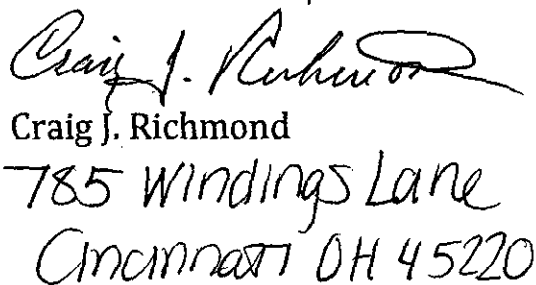 Craig J. Richmond
Craig J. Richmond
785 Windings Lane
Cincinnati OH 45220